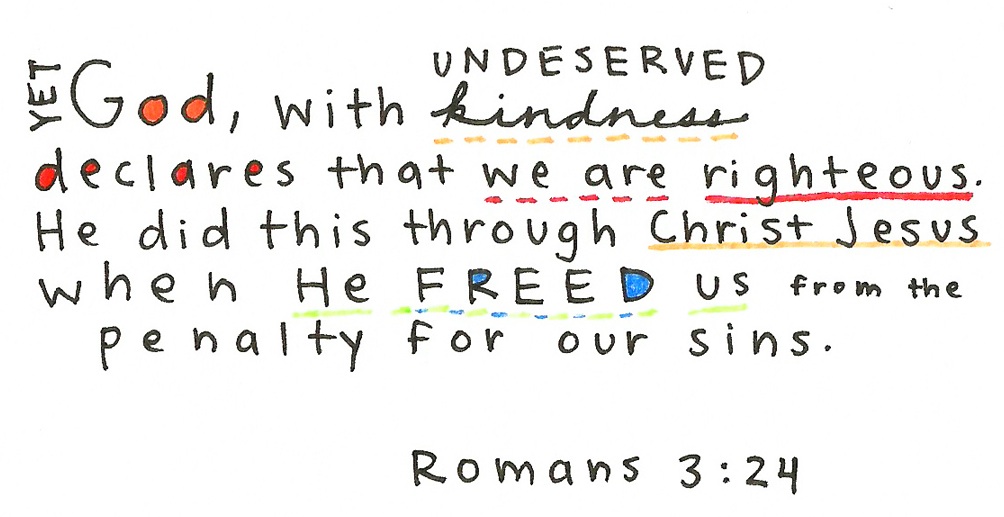 YET God, with UNDESERVED kindness
declares that we are righteous.
He did this through Christ Jesus
when He FREED us from the
penalty for our sins.
Romans 3:24